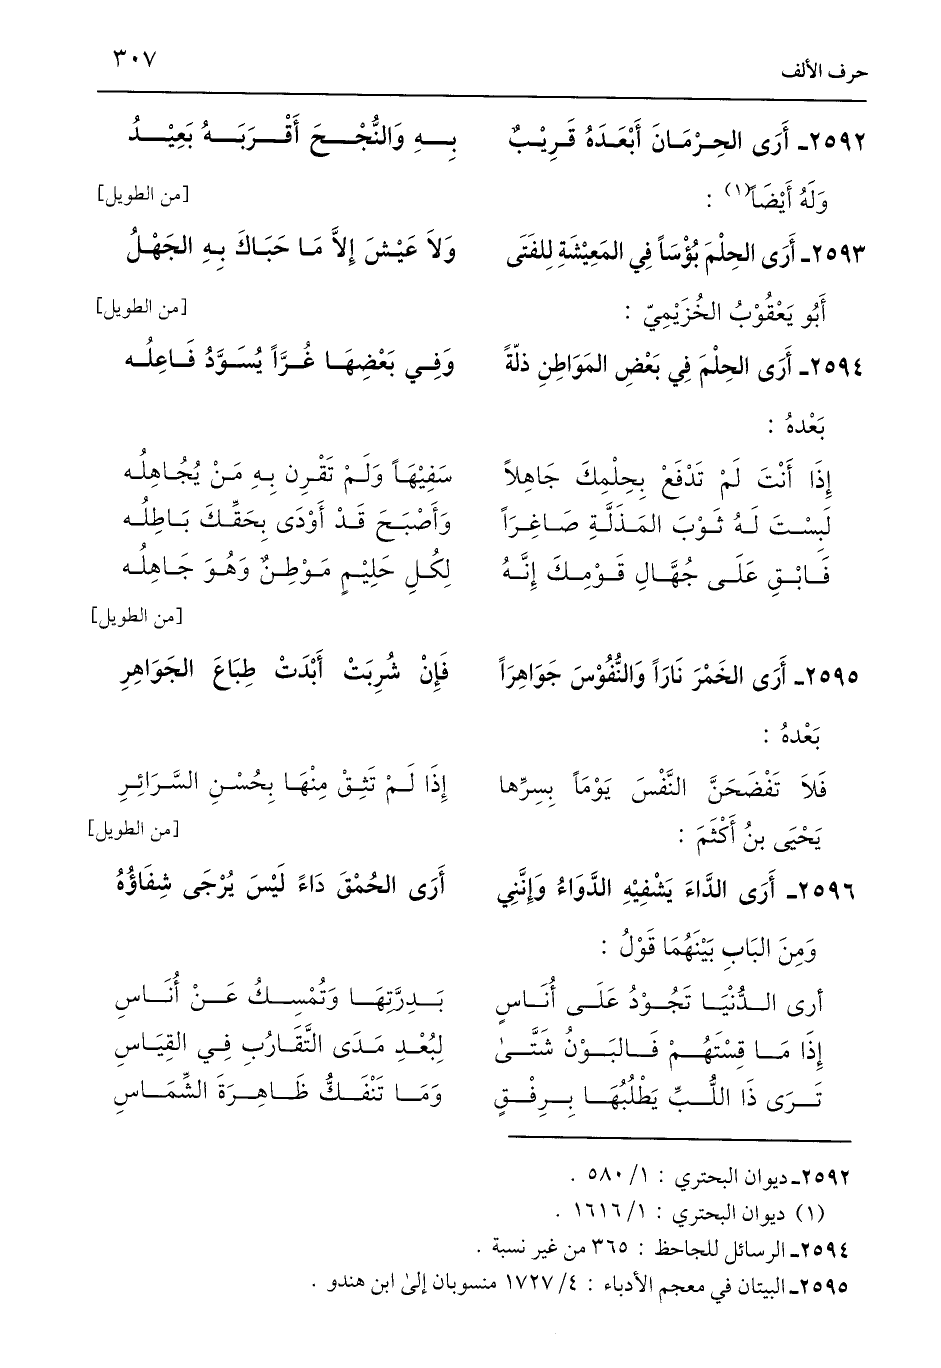 حرف الألف ٣٠٧
٢٥٩٢ـ أَرَى الحِرْمَانَ أَبْعَدَهُ قَرِيْبٌ بِهِ وَالنُّجْحَ أَقْرَبَهُ بَعِيْدُ
وَلَهُ أَيْضَاً(١) : [من الطويل]
٢٥٩٣ـ أَرَى الحِلْمَ بُؤْسَاً فِي المَعِيْشَةِ لِلفَتَى وَلاَ عَيْشَ إِلاَّ مَا حَبَاكَ بِهِ الجَهْلُ
أَبُو يَعْقُوْبُ الخُزَيْمِيّ : [من الطويل]
٢٥٩٤ـ أَرَى الحِلْمَ فِي بَعْضِ المَوَاطِنِ ذلّةً وَفِي بَعْضِهَا غُرَّاً يُسَوَّدُ فَاعِلُه
بَعْدهُ :
إِذَا أَنْتَ لَمْ تَدْفَعْ بِحِلمِكَ جَاهِلاً سَفِيْهَاً وَلَمْ تَقْرِن بِهِ مَنْ يُجَاهِلُه
لَبِسْتَ لَهُ ثَوْبَ المَذَلَّةِ صَاغِرَاً وَأَصْبَحَ قَدْ أَوْدَى بِحَقِّكَ بَاطِلُه
فَابْقِ عَلَى جُهَّالِ قَوْمِكَ إِنَّهُ لِكُلِ حَلِيْمٍ مَوْطِنٌ وَهُوَ جَاهِلُه
[من الطويل]
٢٥٩٥ـ أَرَى الخَمْرَ نَارَاً وَالنُّفُوْسَ جَوَاهِرَاً فَإِنْ شُرِبَتْ أَبْدَتْ طِبَاعَ الجَوَاهِرِ
بَعْدهُ :
فَلاَ تَفْضَحَنَّ النَّفْسَ يَوْمَاً بِسِرِّها إِذَا لَمْ تَثِقْ مِنْهَا بِحُسْنِ السَّرَائِرِ
يَحْيَى بنُ أَكْثَمَ : [من الطويل]
٢٥٩٦ـ أَرَى الدَّاءَ يَشْفِيْهِ الدَّوَاءُ وَإِنَّنِي أَرَى الحُمْقَ دَاءً لَيْسَ يُرْجَى شِفَاؤُهُ
وَمِنَ البَابِ بَيْنَهُمَا قَوْلُ :
أرى الدُّنْيَا تَجُوْدُ عَلَى أُنَاسٍ بَدِرَّتِهَا وَتُمْسِكُ عَنْ أُنَاسِ
إِذَا مَا قِسْتَهُمْ فَالبَوْنُ شَتَّىٰ لِبُعْدِ مَدَى التَّقَارُبِ فِي القِيَاسِ
تَرَى ذَا اللُّبِّ يَطْلُبُهَا بِرِفْقٍ وَمَا تَنْفَكُّ ظَاهِرَةَ الشِّمَاسِ
٢٥٩٢ـ ديوان البحتري : ١/ ٥٨٠ .
(١) ديوان البحتري : ١/ ١٦١٦ .
٢٥٩٤ـ الرسائل للجاحظ : ٣٦٥ من غير نسبة .
٢٥٩٥ـ البيتان في معجم الأدباء : ٤/ ١٧٢٧ منسوبان إلىٰ ابن هندو .